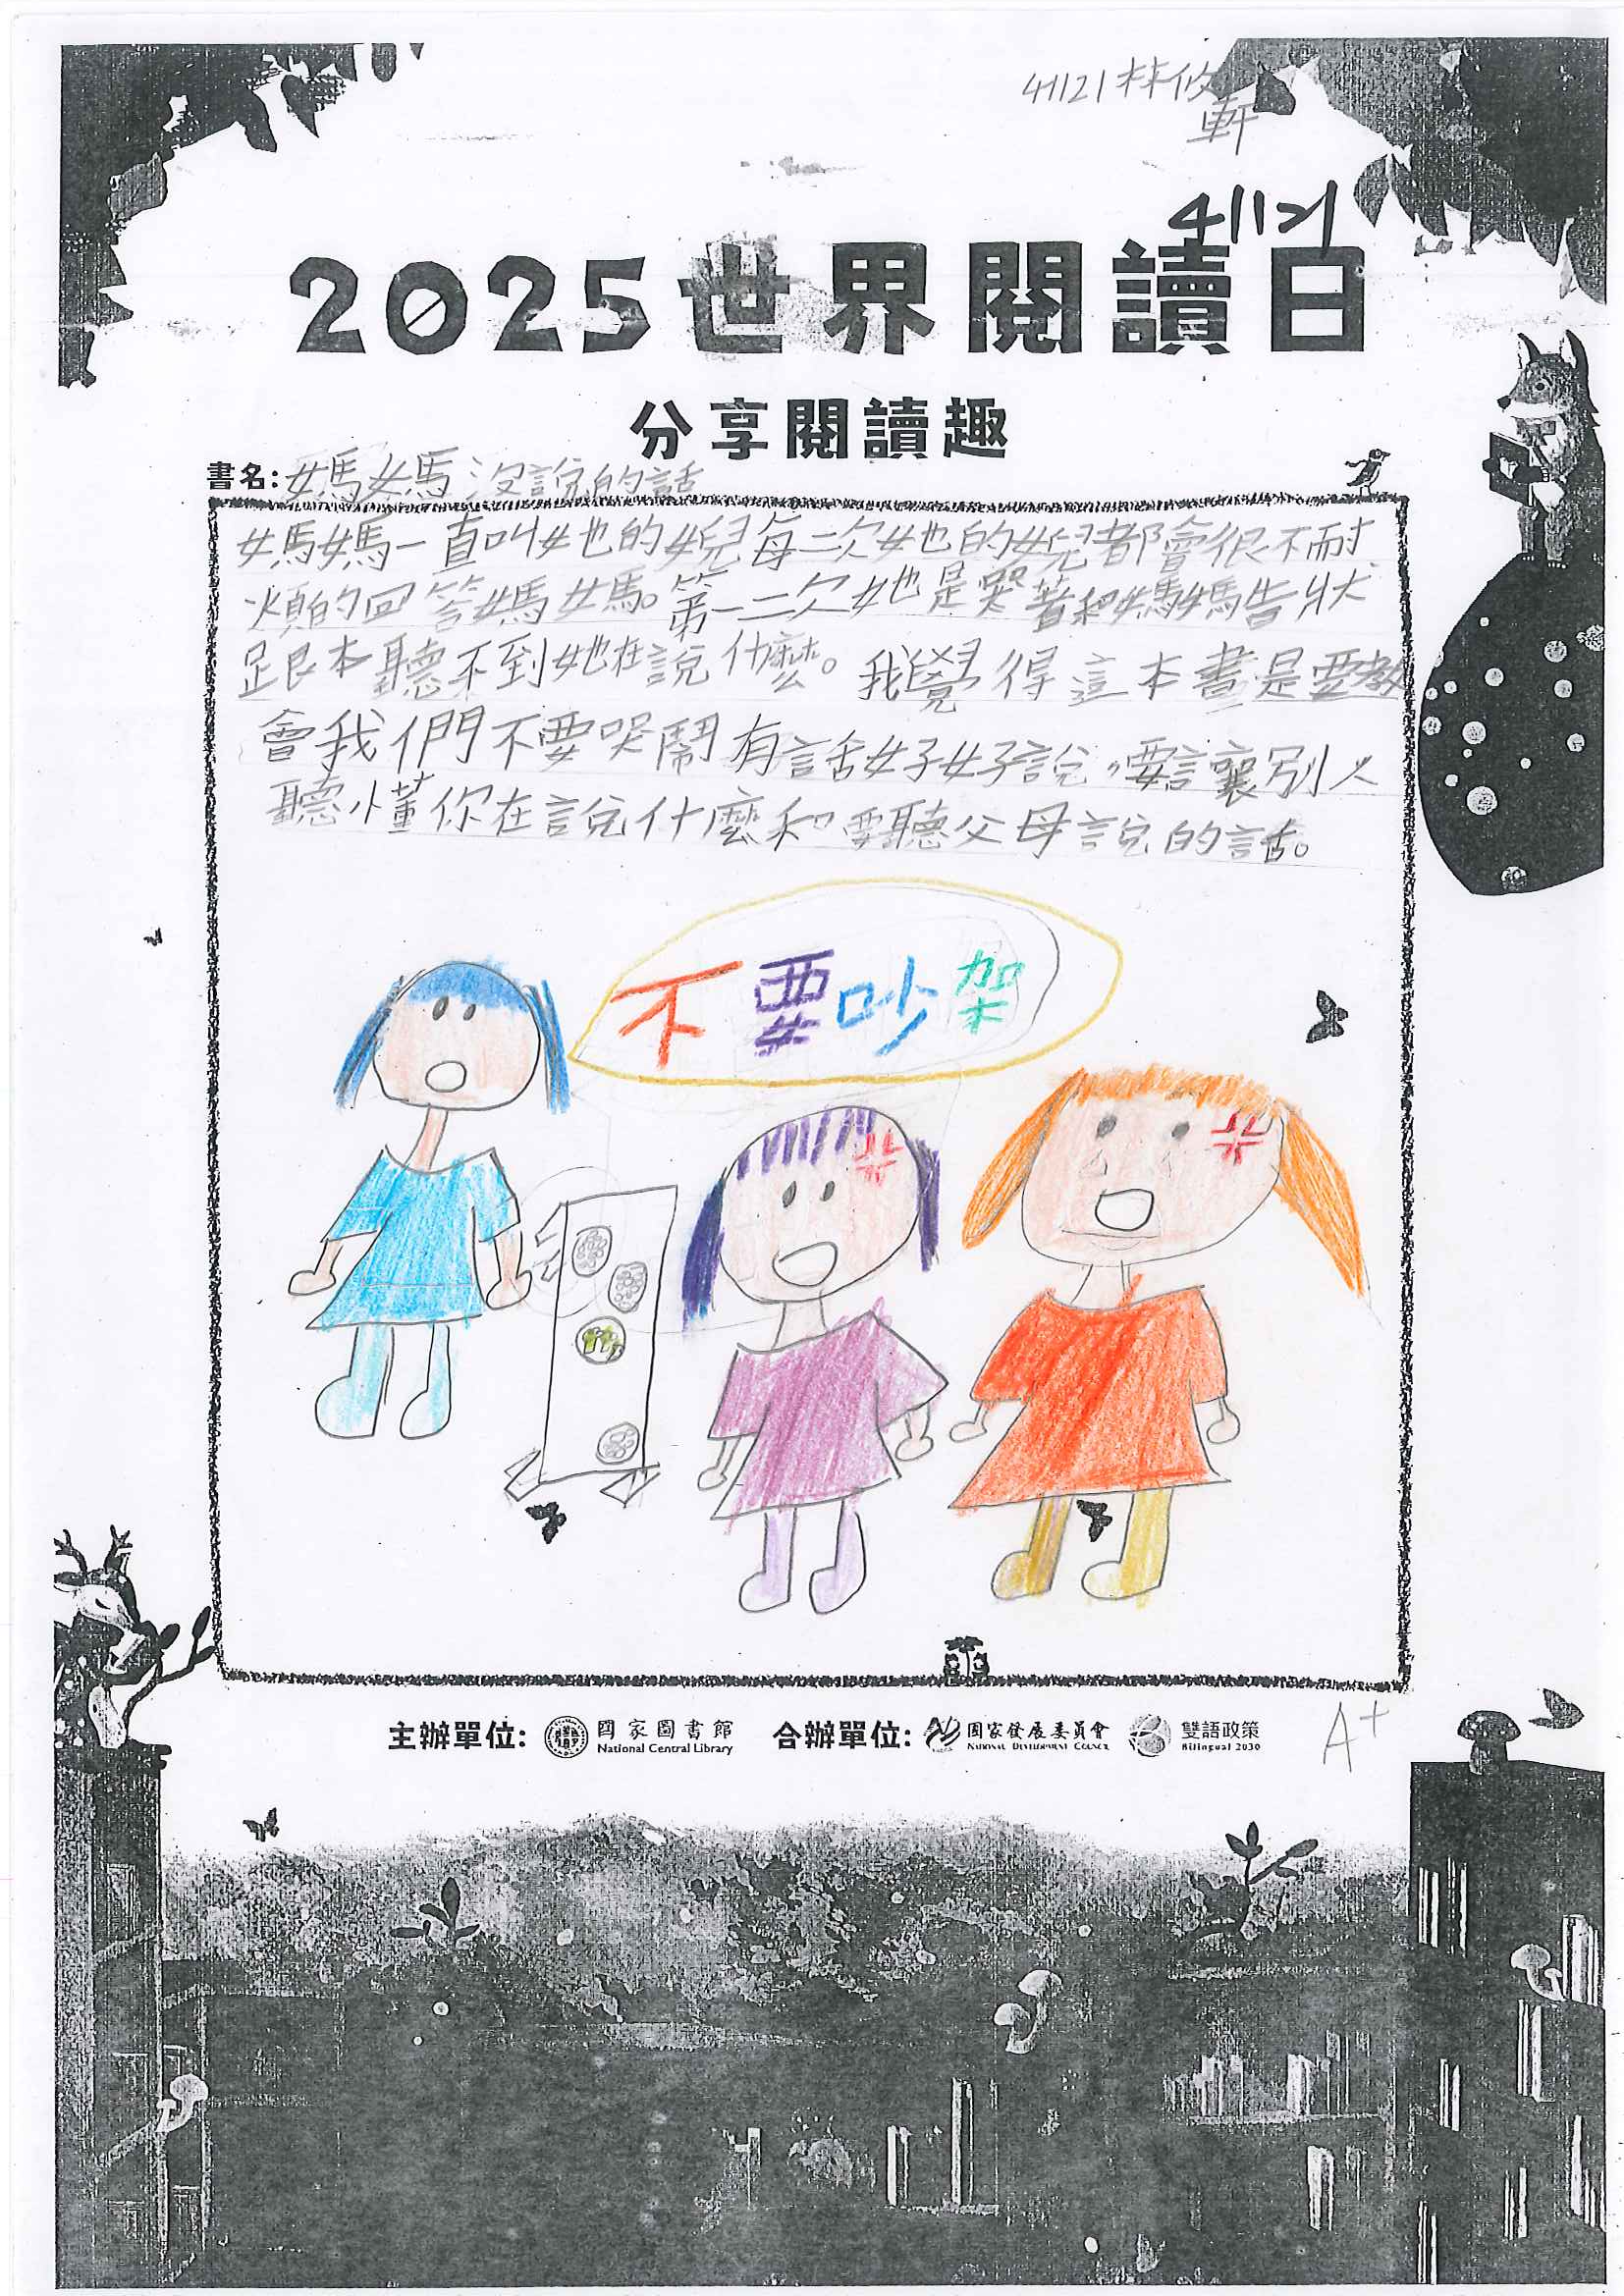 41121林攸
軒
41121
2025世界閱讀日
分享閱讀趣
書名:媽媽沒說的話
媽媽一直叫她的女兒每一次她的女兒都會很不耐
煩的回答媽媽。第一二次她是哭著和媽媽告狀
跟本聽不到她在說什麼。我覺得這本書是要教
會我們不要哭鬧有話好好說,要讓別人
聽懂你在說什麼和要聽父母說的話。
不要吵架
主辦單位: 國家圖書館 National Central Library 合辦單位: 國家發展委員會 NATIONAL DEVELOPMENT COUNCIL 雙語政策 Bilingual 2030
A+